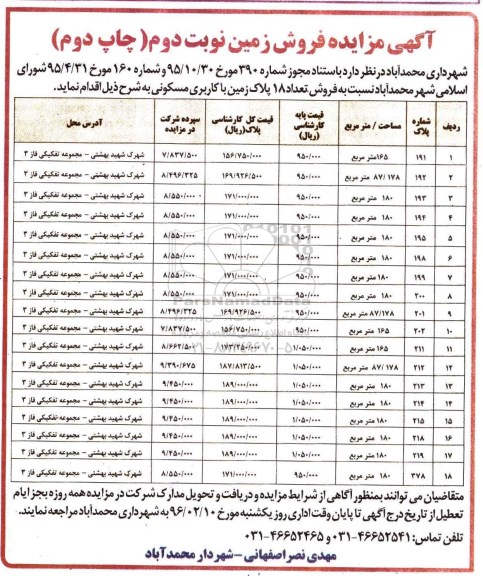 آگهی مزایده فروش زمین نوبت دوم( چاپ دوم)
شهرداری محمدآباد در نظر دارد باستناد مجوز شماره ۳۹۰ مورخ ۹۵/۱۰/۳۰ و شماره ۱۶۰ مورخ ۹۵/۴/۳۱ شورای
اسلامی شهر محمدآباد نسبت به فروش تعداد ۱۸ پلاک زمین با کاربری مسکونی به شرح ذیل اقدام نماید.
ردیف شماره پلاک مساحت / متر مربع قیمت پایه کارشناسی (ریال) قیمت کل کارشناسی پلاک(ریال) سپرده شرکت در مزایده آدرس محل
۱ ۱۹۱ ۱۶۵متر مربع ۹۵۰/۰۰۰ ۱۵۶/۷۵۰/۰۰۰ ۷/۸۳۷/۵۰۰ شهرک شهید بهشتی – مجموعه تفکیکی فاز ۳
۲ ۱۹۲ ۸۷/ ۱۷۸ متر مربع ۹۵۰/۰۰۰ ۱۶۹/۹۲۶/۵۰۰ ۸/۴۹۶/۳۲۵ شهرک شهید بهشتی – مجموعه تفکیکی فاز ۳
۳ ۱۹۳ ۱۸۰ متر مربع ۹۵۰/۰۰۰ ۱۷۱/۰۰۰/۰۰۰ ۸/۵۵۰/۰۰۰ شهرک شهید بهشتی – مجموعه تفکیکی فاز ۳
۴ ۱۹۴ ۱۸۰ متر مربع ۹۵۰/۰۰۰ ۱۷۱/۰۰۰/۰۰۰ ۸/۵۵۰/۰۰۰ شهرک شهید بهشتی – مجموعه تفکیکی فاز ۳
۵ ۱۹۵ ۱۸۰ متر مربع ۹۵۰/۰۰۰ ۱۷۱/۰۰۰/۰۰۰ ۸/۵۵۰/۰۰۰ شهرک شهید بهشتی – مجموعه تفکیکی فاز ۳
۶ ۱۹۸ ۱۸۰ متر مربع ۹۵۰/۰۰۰ ۱۷۱/۰۰۰/۰۰۰ ۸/۵۵۰/۰۰۰ شهرک شهید بهشتی – مجموعه تفکیکی فاز ۳
۷ ۱۹۹ ۱۸۰ متر مربع ۹۵۰/۰۰۰ ۱۷۱/۰۰۰/۰۰۰ ۸/۵۵۰/۰۰۰ شهرک شهید بهشتی – مجموعه تفکیکی فاز ۳
۸ ۲۰۰ ۱۸۰ متر مربع ۹۵۰/۰۰۰ ۱۷۱/۰۰۰/۰۰۰ ۸/۵۵۰/۰۰۰ شهرک شهید بهشتی – مجموعه تفکیکی فاز ۳
۹ ۲۰۱ ۸۷/۱۷۸ متر مربع ۹۵۰/۰۰۰ ۱۶۹/۹۲۶/۵۰۰ ۸/۴۹۶/۳۲۵ شهرک شهید بهشتی – مجموعه تفکیکی فاز ۳
۱۰ ۲۰۲ ۱۶۵ متر مربع ۹۵۰/۰۰۰ ۱۵۶/۷۵۰/۰۰۰ ۷/۸۳۷/۵۰۰ شهرک شهید بهشتی – مجموعه تفکیکی فاز ۳
۱۱ ۲۱۱ ۱۶۵ متر مربع ۱/۰۵۰/۰۰۰ ۱۷۳/۲۵۰/۰۰۰ ۸/۶۶۲/۵۰۰ شهرک شهید بهشتی – مجموعه تفکیکی فاز ۳
۱۲ ۲۱۲ ۸۷/ ۱۷۸ متر مربع ۱/۰۵۰/۰۰۰ ۱۸۷/۸۱۳/۵۰۰ ۹/۳۹۰/۶۷۵ شهرک شهید بهشتی – مجموعه تفکیکی فاز ۳
۱۳ ۲۱۳ ۱۸۰ متر مربع ۱/۰۵۰/۰۰۰ ۱۸۹/۰۰۰/۰۰۰ ۹/۴۵۰/۰۰۰ شهرک شهید بهشتی – مجموعه تفکیکی فاز ۳
۱۴ ۲۱۴ ۱۸۰ متر مربع ۱/۰۵۰/۰۰۰ ۱۸۹/۰۰۰/۰۰۰ ۹/۴۵۰/۰۰۰ شهرک شهید بهشتی – مجموعه تفکیکی فاز ۳
۱۵ ۲۱۵ ۱۸۰ متر مربع ۱/۰۵۰/۰۰۰ ۱۸۹/۰۰۰/۰۰۰ ۹/۴۵۰/۰۰۰ شهرک شهید بهشتی – مجموعه تفکیکی فاز ۳
۱۶ ۲۱۸ ۱۸۰ متر مربع ۱/۰۵۰/۰۰۰ ۱۸۹/۰۰۰/۰۰۰ ۹/۴۵۰/۰۰۰ شهرک شهید بهشتی – مجموعه تفکیکی فاز ۳
۱۷ ۲۱۹ ۱۸۰ متر مربع ۱/۰۵۰/۰۰۰ ۱۸۹/۰۰۰/۰۰۰ ۹/۴۵۰/۰۰۰ شهرک شهید بهشتی – مجموعه تفکیکی فاز ۳
۱۸ ۳۷۸ ۱۸۰ متر مربع ۹۵۰/۰۰۰ ۱۷۱/۰۰۰/۰۰۰ ۸/۵۵۰/۰۰۰ شهرک شهید بهشتی – مجموعه تفکیکی فاز ۳
ParsNamadData
متقاضیان می توانند بمنظور آگاهی از شرایط مزایده و دریافت و تحویل مدارک شرکت در مزایده همه روزه بجز ایام
تعطیل از تاریخ درج آگهی تا پایان وقت اداری روز یکشنبه مورخ ۹۶/۰۲/۱۰ به شهرداری محمدآباد مراجعه نمایند.
تلفن تماس: ۴۶۶۵۲۵۴۱-۰۳۱ و ۴۶۶۵۲۴۶۵-۰۳۱
مهدی نصراصفهانی-شهردار محمدآباد